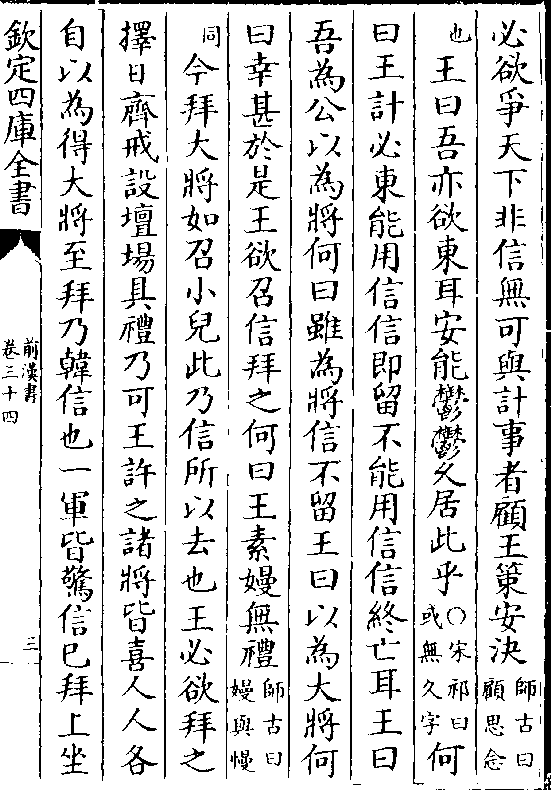 必欲爭天下非信無可與計事者顧王策安決師古曰顧思念
也王曰吾亦欲東耳安能鬱鬱乆居此乎○宋祁曰或無久字何
曰王計必東能用信信即留不能用信信終亡耳王曰
吾為公以為將何曰雖為將信不留王曰以為大將何
曰幸甚於是王欲召信拜之何曰王素嫚無禮師古曰嫚與慢
同今拜大將如召小兒此乃信所以去也王必欲拜之
擇日齊戒設壇塲具禮乃可王許之諸將皆喜人人各
自以為得大將至拜乃韓信也一軍皆驚信已拜上坐
欽定四庫全書
前漢書
卷三十四
三